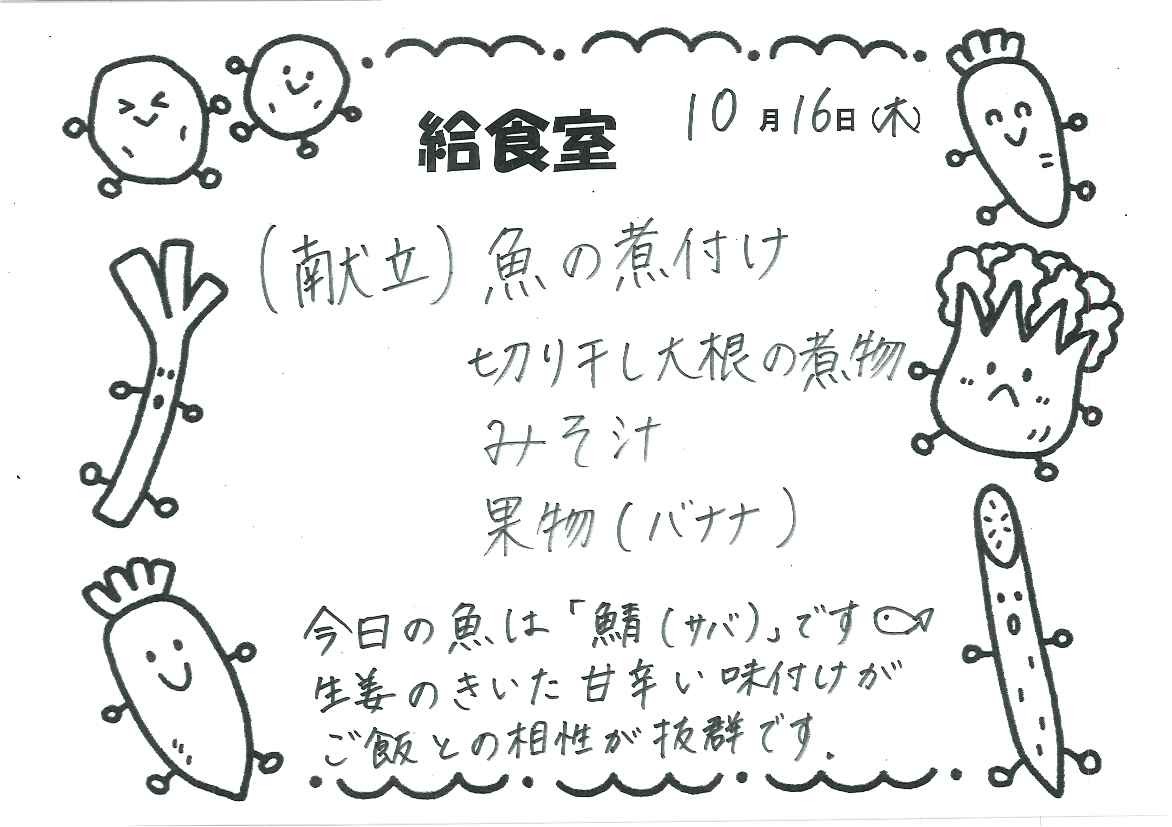 給食室 10月16日(木)
(献立)魚の煮付け
切り干し大根の煮物
みそ汁
果物(バナナ)
今日の魚は「鯖(サバ)」です
生姜のきいた甘辛い味付けが
ご飯との相性が抜群です.